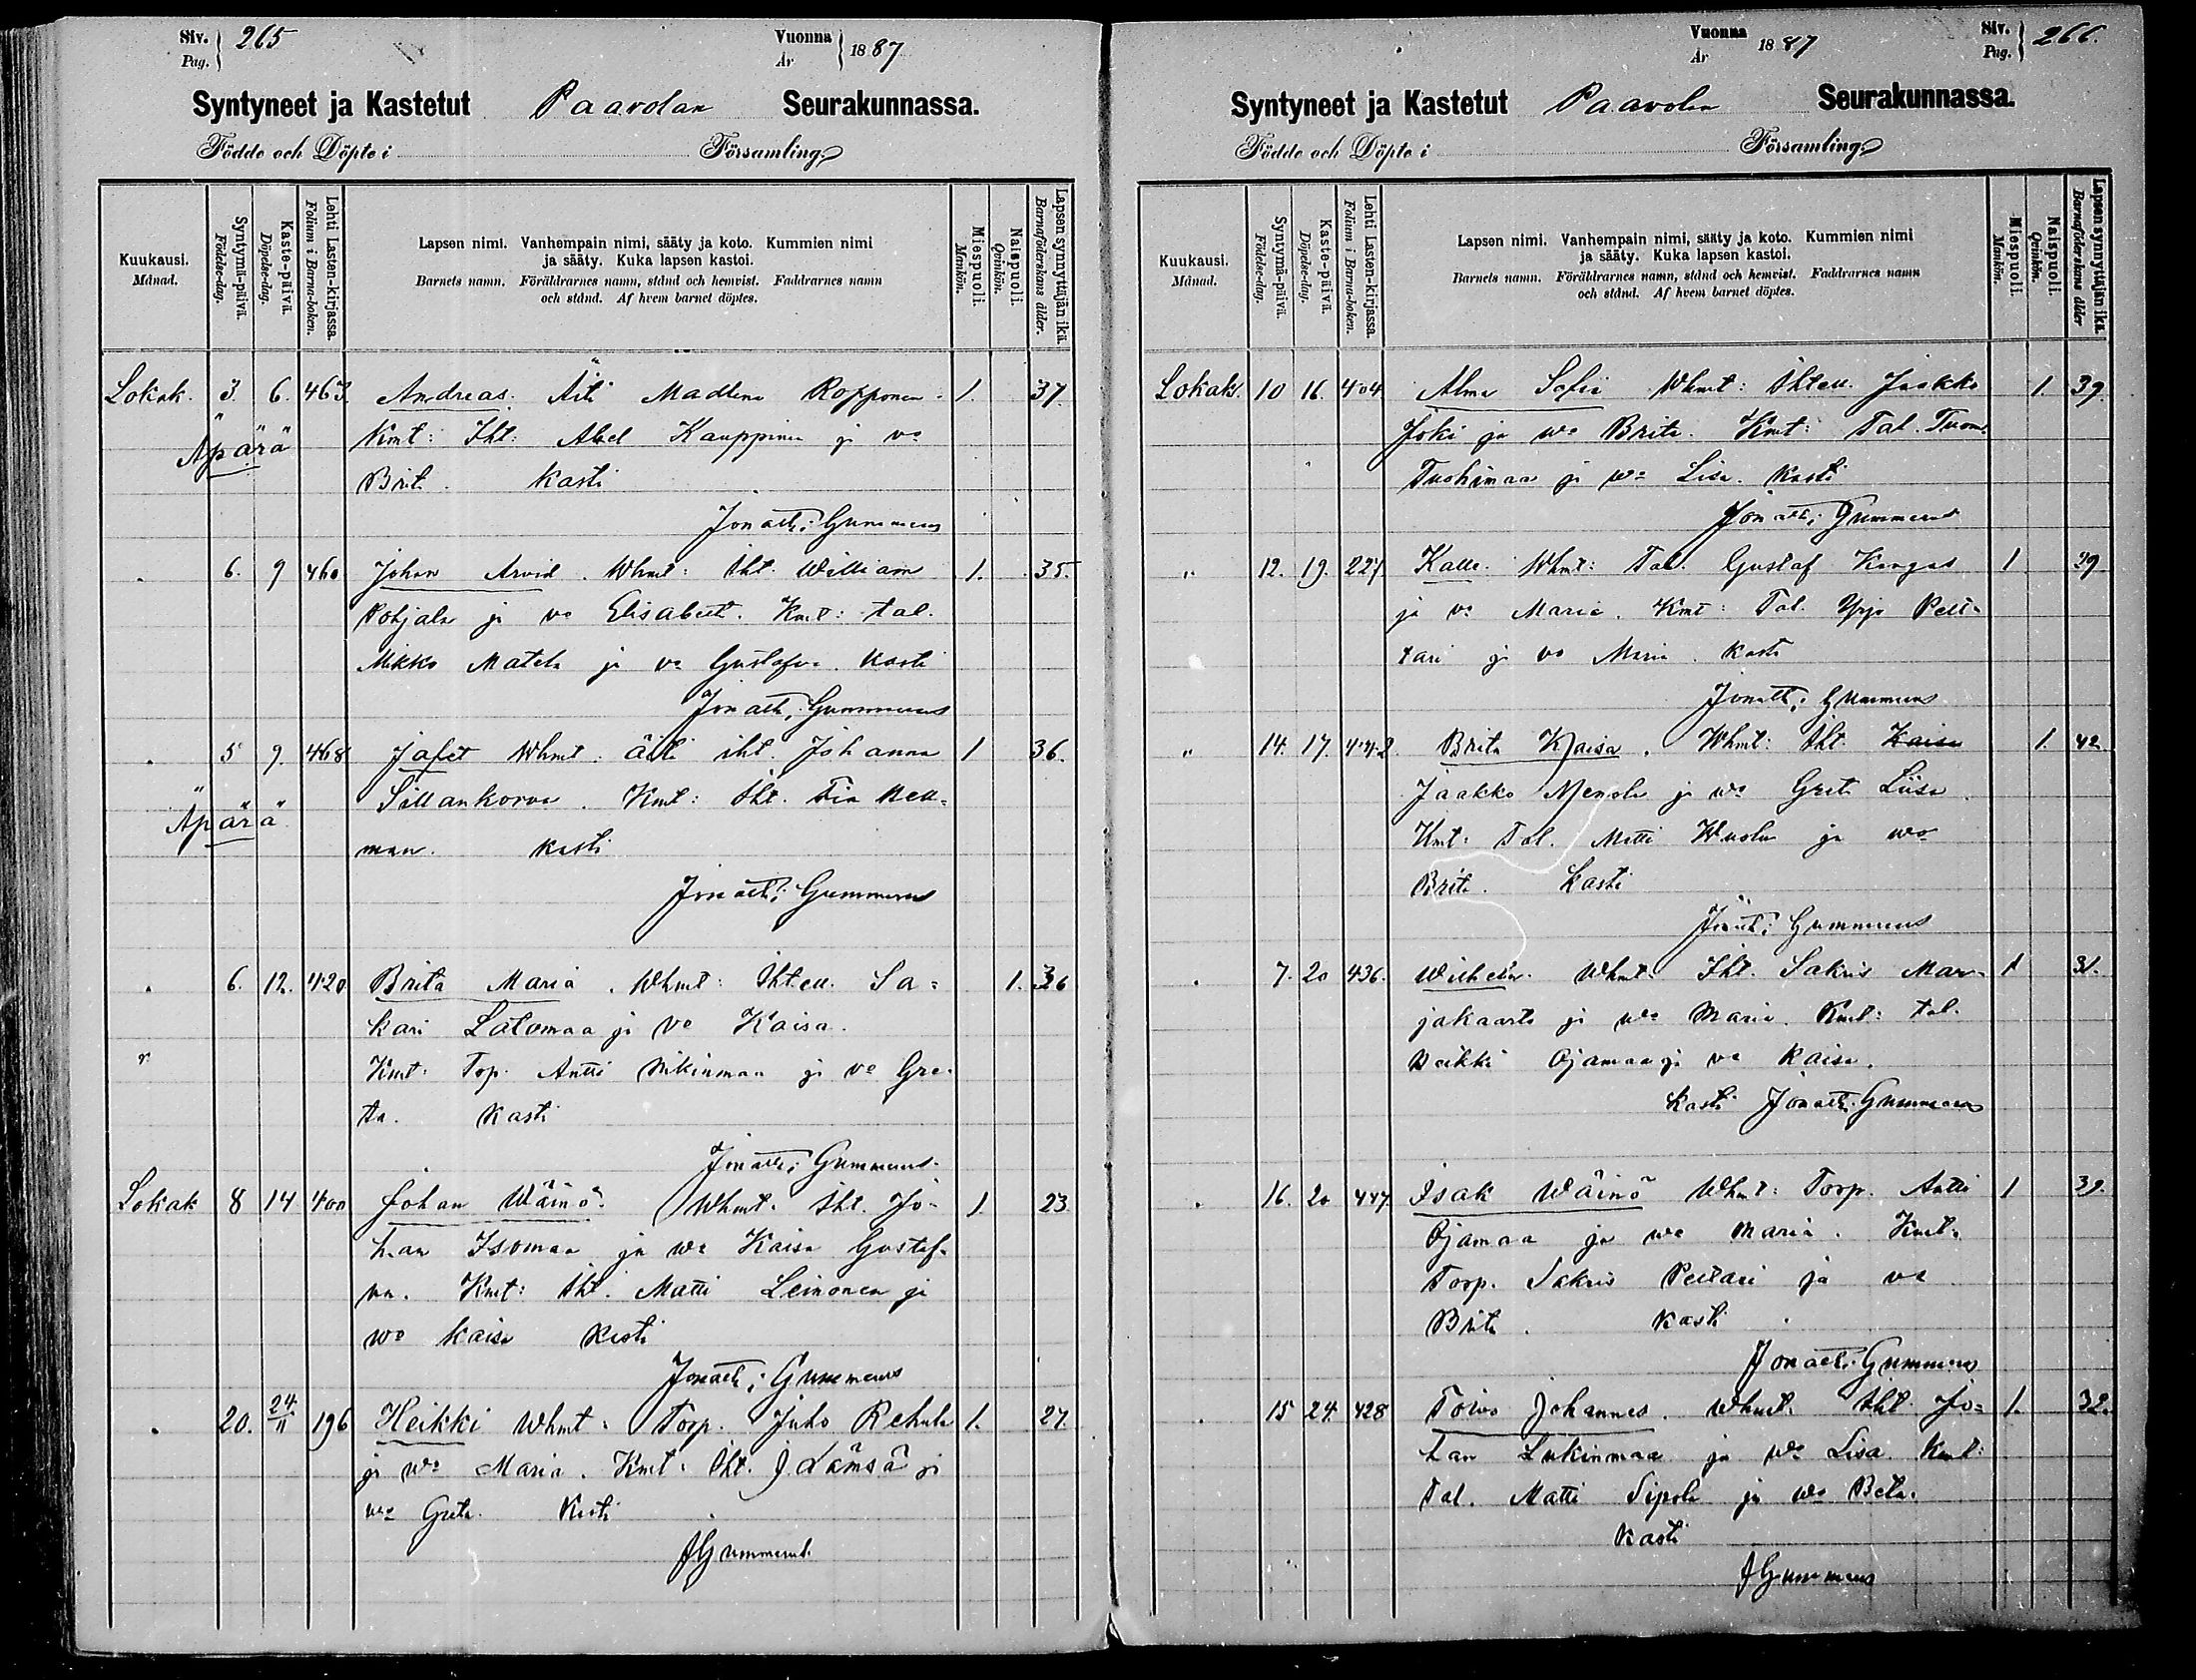 Siv. 265
Pag.
Vuonna 1887
År
Syntyneet ja Kastetut Paavolan Seurakunnassa.
Födde och Döpte i Församling.
Kuukausi.
Månad.
Syntymä-päivä.
Födelse-dag.
Kaste-päivä.
Döpelse-dag.
Lehti Lasten-kirjassa.
Folium i Barna-boken.
Lapsen nimi. Vanhempain nimi, sääty ja koto. Kummien nimi
ja sääty. Kuka lapsen kastoi.
Barnets namn. Föräldrarnes namn, stånd och hemvist. Faddrarnes namn
och stånd. Af hvem barnet döptes.
Miespuoli.
Mankön.
Naispuoli.
Qvinkön.
Lapsen synnyttäjän ikä.
Barnaföderskans ålder.
Lokak. 3. 6. 463. Andreas. Äiti Madlena Ropponen. 1. 37.
Äpärä Kmt: Iht: Abel Kauppinen ja vo
Brita. Kasti
Jonath: Gummerus
" 6. 9 460 Johan Arvid. Whmt: Iht. William 1. 35.
Pohjala ja vo Elisabeth. Kmt: tal.
Mikko Matela ja vo Gustafva. Kasti
Jonath: Gummerus
" 5 9. 468 Jafet Whmt: äiti iht. Johanna 1 36.
Äpärä Sillankorva. Kmt: Iht. Fia
man. kasti
Jonath: Gummerus
" 6. 12. 420 Brita Maria. Whmt: Iht:n Sa= 1. 36
kari Latomaa ja vo Kaisa.
" Kmt: Top. Antti Mikinmaa ja vo Gre-
ta. Kasti
Jonath: Gummerus.
Lokak 8 14 400 Johan Wäinö. Whmt. Iht. Jo- 1. 23
han Isomaa ja wo Kaisa Gustaf-
va. Kmt: Iht. Matti Leinonen ja
wo Kaisa Kasti
Jonath: Gummerus
" 20. 24/11 196 Heikki Whmt: Torp. Juho Rehula 1. 27.
ja wo Maria. Kmt: Iht. J. Lämsä ja
wo Greta. Kasti
JGummerus.
Vuonna 1887
År
Siv. 266.
Pag.
Syntyneet ja Kastetut Paavolan Seurakunnassa.
Födde och Döpte i Församling.
Kuukausi.
Månad.
Syntymä-päivä.
Födelse-dag.
Kaste-päivä.
Döpelse-dag.
Lehti Lasten-kirjassa.
Folium i Barna-boken.
Lapsen nimi. Vanhempain nimi, sääty ja koto. Kummien nimi
ja sääty. Kuka lapsen kastoi.
Barnets namn. Föräldrarnes namn, stånd och hemvist. Faddrarnes namn
och stånd. Af hvem barnet döptes.
Miespuoli.
Mankön.
Naispuoli.
Qvinkön.
Lapsen synnyttäjän ikä.
Barnaföderskans ålder
Lokak. 10 16. 404 Alma Sofia Whmt: Iht:n Jaakko 1. 39.
Joki ja wo Brita. Kmt: Tal. Tuom.
Tuohimaa ja wo Lisa. Kasti
Jonath: Gummerus
" 12. 19. 227 Kalle. Whmt: Tal. Gustaf Kangas 1 39
ja vo Maria. Kmt: Tal. Yrjö Pelt-
tari ja vo Maria. Kasti
Jonath: Gummerus
" 14. 17. 442. Brita Kaisa. Whmt: Iht. Kaisa 1. 42
Jaakko Menola ja wo Greta Liisa.
Kmt: Tal. Matti Wuolu ja wo
Brita. Kasti
Jonath: Gummerus
" 7. 20 436. Wilhelm. Whmt: Iht. Sakris Mar- 1 31.
jakaarto ja wo Maria. Kmt: tal.
Heikki Ojamaa ja vo Kaisa.
Kasti Jonath: Gummerus
" 16. 20 447. Isak Wäinö Whmt: Torp. Antti 1 39.
Ojamaa ja wo Maria. Kmt:
Torp. Sakris Pelttari ja vo
Brita. Kasti
Jonath: Gummerus
" 15 24. 428 Toivo Johannes. Whmt: Iht. Jo= 1. 32.
han Lukinmaa ja wo Lisa. Kmt:
Tal. Matti Sipola ja wo Beta.
Kasti
JGummerus